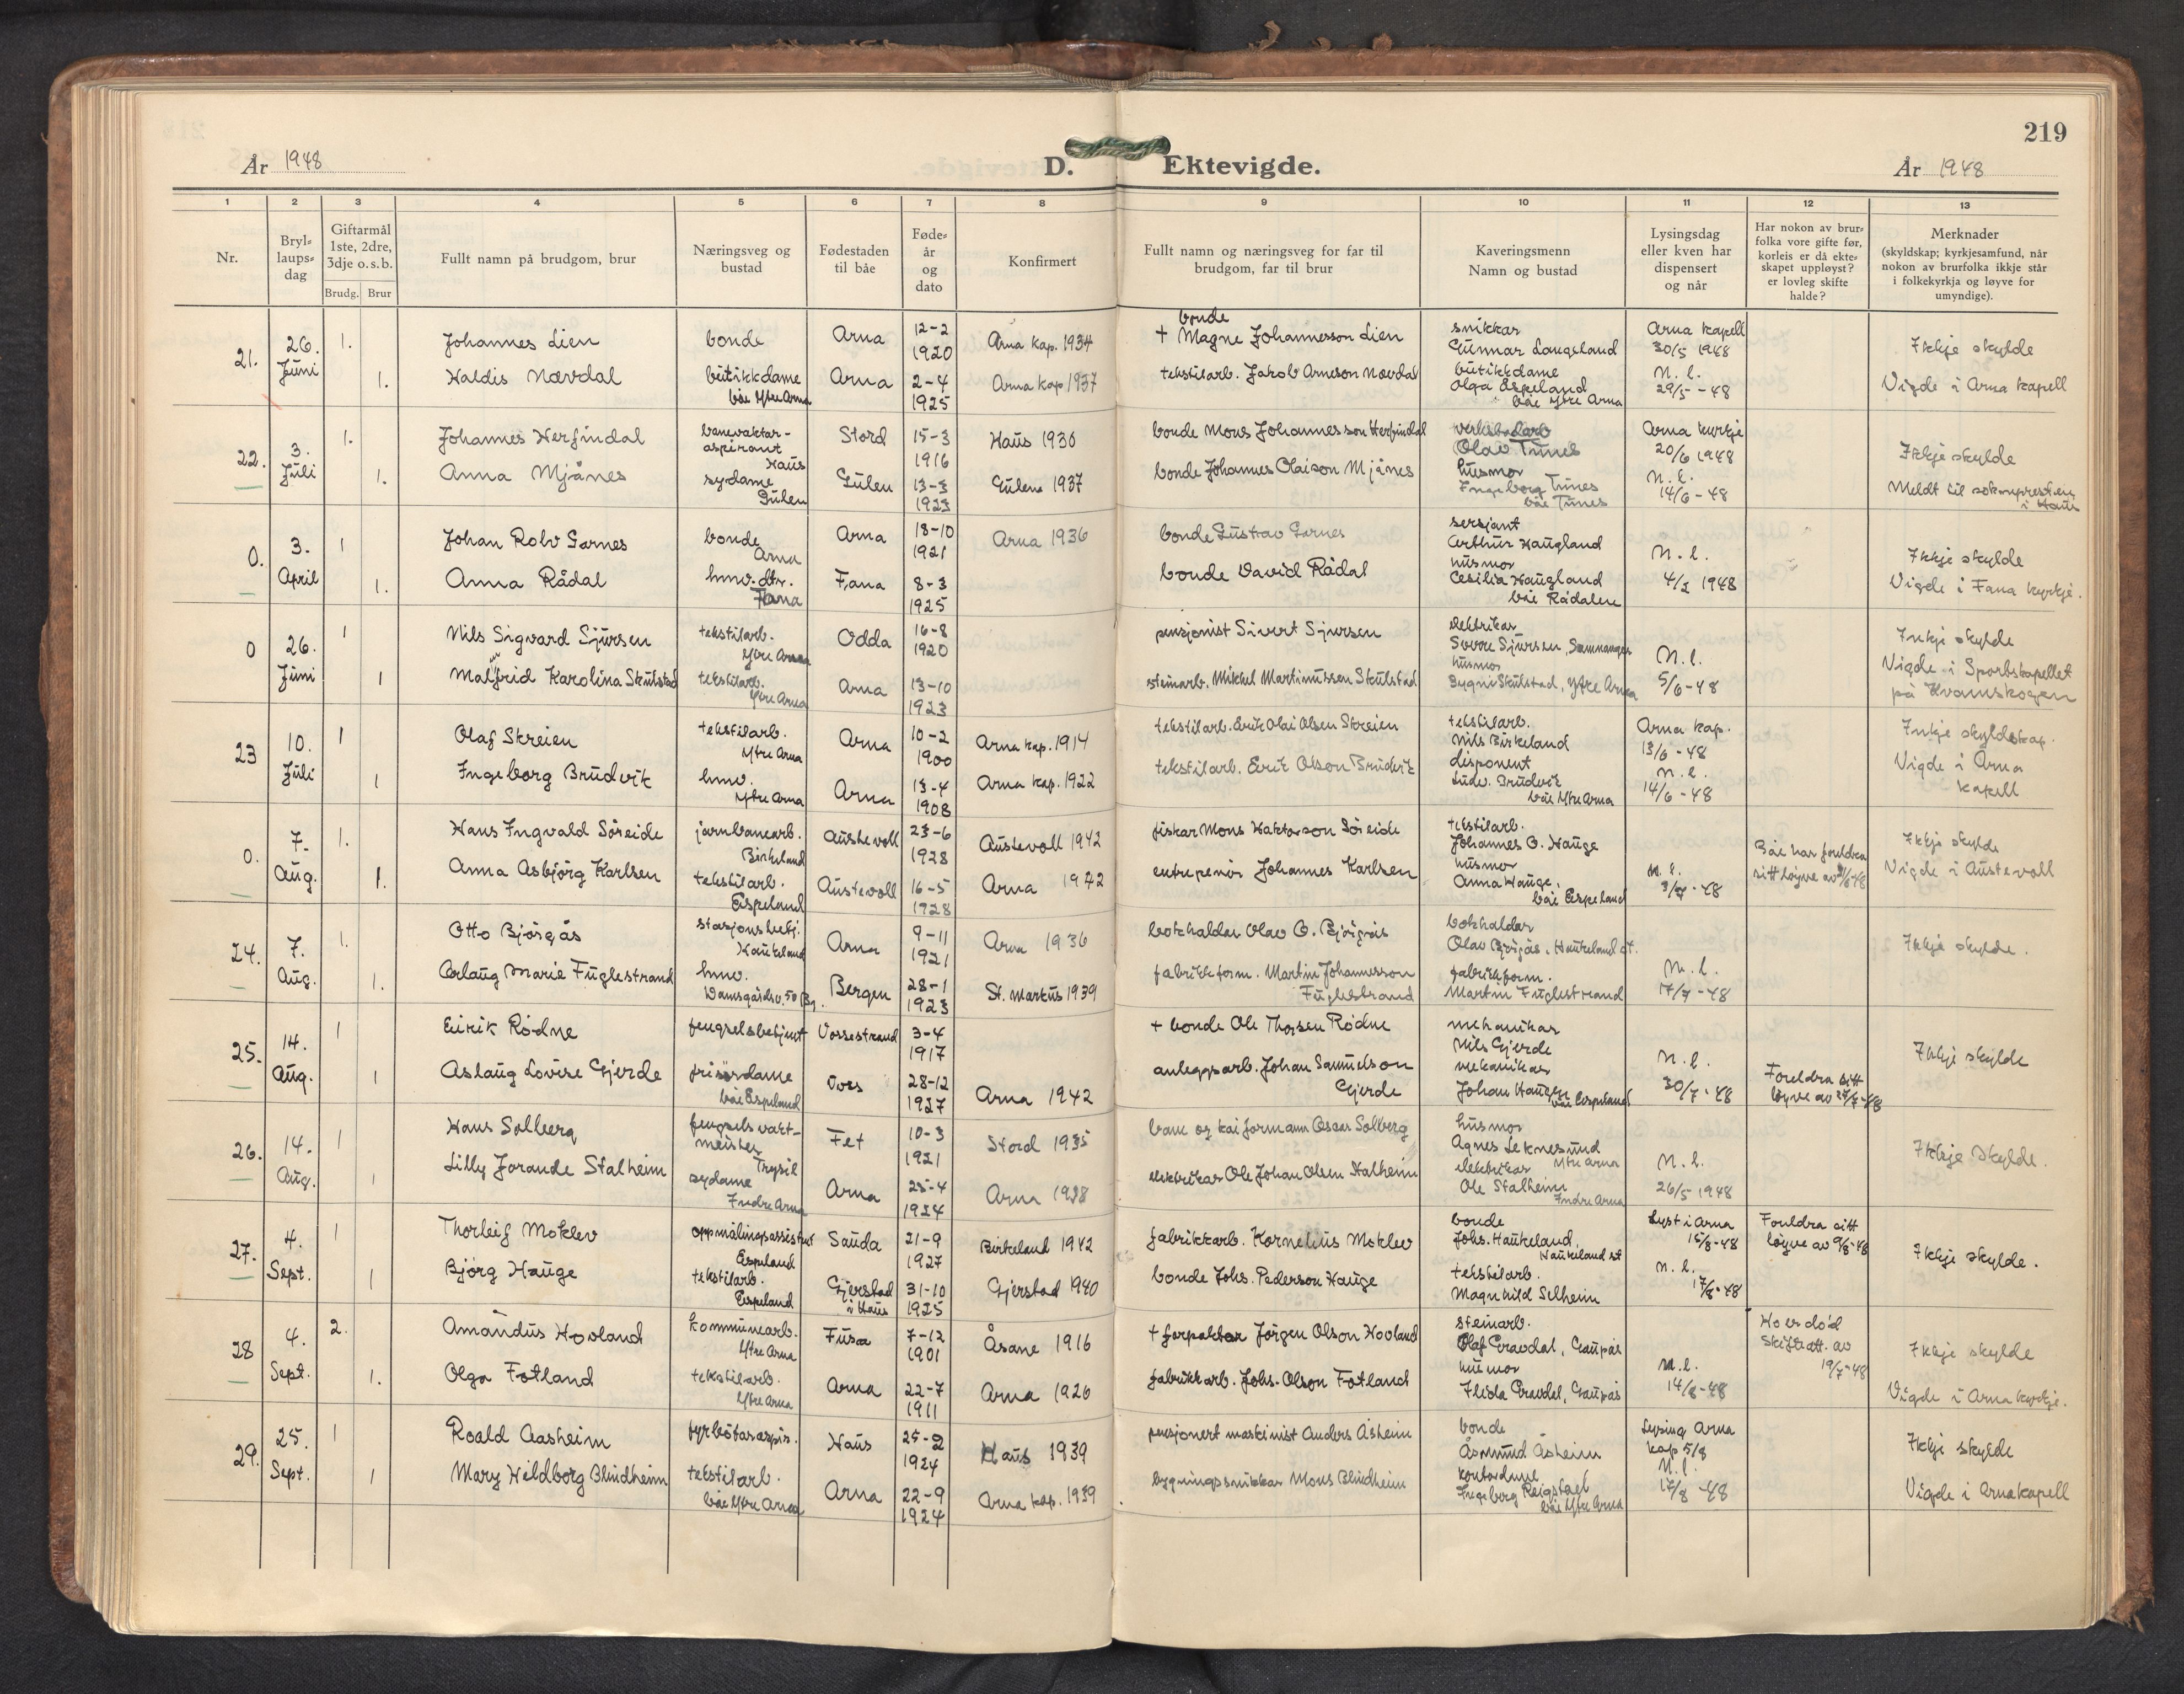 219
År 1948 D. Ektevigde. År 1948
1 2 3 4 5 6 7 8 9 10 11 12 13
Nr.
Bryl-
laups-
dag
Giftarmål
1ste, 2dre,
3dje o.s.b.
Brudg. Brur
Fullt namn på brudgom, brur
Næringsveg og
bustad
Fødestaden
til båe
Føde-
år
og
dato
Konfirmert
Fullt namn og næringsveg for far til
brudgom, far til brur
Kaveringsmenn
Namn og bustad
Lysingsdag
eller kven har
dispensert
og når
Har nokon av brur-
folka vore gifte før,
korleis er då ekte-
skapet uppløyst?
er lovleg skifte
halde?
Merknader
(skyldskap; kyrkjesamfund, når
nokon av brurfolka ikkje står
i folkekyrkja og løyve for
umyndige).
21.
26.
Juni
1.
Johannes Lien
bonde
Arna
12-2
1920
Arna kap. 1934
bonde
+ Magne Johannesson Lien
snikkar
Gunnar Langeland
Arna kapell
30/5 1948
Ikkje skylde
1.
Haldis Nævdal
butikkdame
båe Ytre Arna
Arna
2-4
1925
Arna kap 1937
tekstilarb. Jakob Arneson Nævdal
butikkdame
Olga Espeland
båe Ytre Arna
N. l.
29/5 - 48
Vigde i Arna kapell
22.
3.
Juli
1.
Johannes Herfindal
banevaktar-
aspirant
Haus
Stord
15-3
1916
Haus 1930
bonde Mons Johannesson Herfindal
Olav Tunes
Arna kyrkje
20/6 1948
Ikkje skylde
1.
Anna Mjånes
sydame
Gulen
Gulen
13-3
1923
Gulen 1937
bonde Johannes Olaison Mjånes
husmor
Ingeborg Tunes
båe Tunes
N. l.
14/6 - 48
Meldt til soknepresten
i Haus
0.
3.
April
1
Johan Rolv Garnes
bonde
Arna
Arna
18-10
1921
Arna 1936
bonde Gustav Garnes
sersjant
Arthur Haugland
N. l.
4/2 1948
Ikkje skylde
1.
Anna Rådal
hmv. dtr.
Fana
Fana
8-3
1925
bonde David Rådal
husmor
Cesilia Haugland
båe Rådalen
Vigde i Fana kyrkje.
0
26.
Juni
1
Nils Sigvard Sjursen
tekstilarb.
Ytre Arna
Odda
16-8
1920
pensjonist Sivert Sjursen
elektrikar
Sverre Sjursen, Samnanger
N. l.
5/6 - 48
Inkje skylde
1
Malfrid Karolina Skulstad
tekstilarb.
Ytre Arna
Arna
13-10
1923
steinarb. Mikkel Martinussen Skulstad
husmor
Sygni Skulstad, Ytre Arna
Vigde i Sportskapellet
på Kvamskogen
23
10.
Juli
1
Olaf Skreien
tekstilarb.
Ytre Arna
Arna
10-2
1900
Arna kap. 1914
tekstilarb. Erik Olai Olsen Skreien
tekstilarb.
Nils Birkeland
Arna kap.
13/6 - 48
Inkje skyldskap.
1
Ingeborg Brudvik
hmv.
Ytre Arna
Arna
13-4
1908
Arna kap. 1922
tekstilarb. Erik Olson Brudvik
disponent
Ludv. Brudvik
båe Ytre Arna
N. l.
14/6 - 48
Vigde i Arna
kapell
0.
7.
Aug.
1.
Hans Ingvald Söreide
jarnbanearb.
Birkeland
Austevoll
23-6
1928
Austevoll 1942
fiskar Mons Haktorson Söreide
tekstilarb.
Johannes O. Hauge
Båe har foreldra
sitt løyve av
Ikkje skylde
1.
Anna Asbjörg Karlsen
tekstilarb.
Espeland
Austevoll
16-5
1928
Arna 1942
entrepenör Johannes Karlsen
husmor
Anna Hauge,
båe Espeland
N. l.
3/7 - 48
Vigde i Austevoll
24.
7.
Aug.
1.
Otto Björgås
stasjonsbetj.
Haukeland
Arna
9-11
1921
Arna 1936
bokhaldar Olav O. Björgås
bokhaldar
Olav Björgås, Haukeland st.
Ikkje skylde.
1.
Arlaug Marie Fuglestrand
hmv.
Damsgårdsv. 50 Bg.
Bergen
28-1
1923
St. Markus 1939
fabrikkform. Martin Johannesson
Fuglestrand
fabrikkform.
Martin Fuglestrand
N. l.
17/7 - 48
25.
14.
Aug.
1
Eirik Rödne
fengselsbetjent
Vossestrand
3-4
1917
+ bonde Ole Thorsen Rödne
mekanikar
Nils Gjerde
N. l.
30/7 - 48
Ikkje skylde
1
Aslaug Lovise Gjerde
frisördame
båe Espeland
Voss
28-12
1927
Arna 1942
anleggsarb. Johan Samuelson
Gjerde
mekanikar
Johan Hauge
båe Espeland
Foreldra sitt
løyve av 27/7-48
26.
14.
Aug.
1
Hans Solberg
fengselsvakt-
meister
Trysil
Fet
10-3
1921
Stord 1935
bane og kai formann Oscar Solberg
husmor
Agnes Leknesund
Ytre Arna
N. l.
26/5 1948
Ikkje skylde.
1
Lilly Jorande Stalheim
sydame
Indre Arna
Arna
25-4
1924
Arna 1938
elektrikar Ole Johan Olsen Stalheim
elektrikar
Ole Stalheim
Indre Arna
27.
4.
Sept.
1
Thorleif Moklev
oppmålingsassistent
Espeland
Sauda
21-9
1927
Birkeland 1942
fabrikkarb. Kornelius Moklev
bonde
Johs. Haukeland,
Haukeland st
Lyst i Arna
15/8-48
Foreldra sitt
løyve av 9/8-48
Ikkje skylde.
1
Björg Hauge
tekstilarb.
Espeland
Gjerstad
i Haus
31-10
1925
Gjerstad 1940
bonde Johs. Pederson Hauge
tekstilarb.
Magnhild Selheim
N. l.
17/8-48
28
4.
Sept.
2.
Amandus Hovland
kommunearb.
Ytre Arna
Fusa
7-12
1901
Åsane 1916
+ forpaktar Jörgen Olson Hovland
steinarb.
Olaf Gravdal, Gaupås
Ho er död
Skifteatt. av
19/7-48
Ikkje skylde
1.
Olga Fotland
tekstilarb.
Ytre Arna
Arna
22-7
1911
Arna 1926
fabrikkarb. Johs. Olson Fotland
husmor
Gravdal, Gaupås
N. l.
14/8-48
Vigde i Arna kyrkje.
29.
25.
Sept.
1
Roald Aasheim
fyrbötaraspir.
Haus
25-2
1924
Haus 1939
pensjonert maskinist Anders Åsheim
bonde
Åsmund Åsheim
Lysing Arna
kap 5/8
Ikkje skylde
1
Mary Hildborg Blindheim
tekstilarb.
båe Ytre Arna
Arna
22-9
1924
Arna kap. 1939
bygningssnikkar Mons Blindheim
kontordame
Ingeborg Reigstad
båe Ytre Arna
N. l.
17/8 - 48
Vigde i Arna kapell